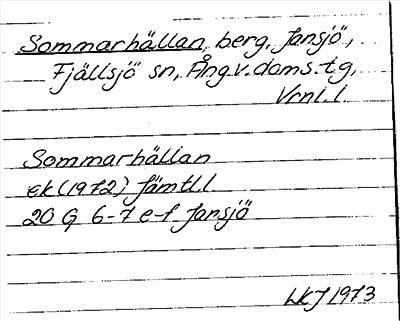 Sommarhällan, berg, Jansjö,
Fjällsjö sn, Ång.v.doms.tg,
Vrnl.l.
Sommarhällan
ek (1972) Jämtl.l.
20 G 6-7 e-f Jansjö
LKJ 1973